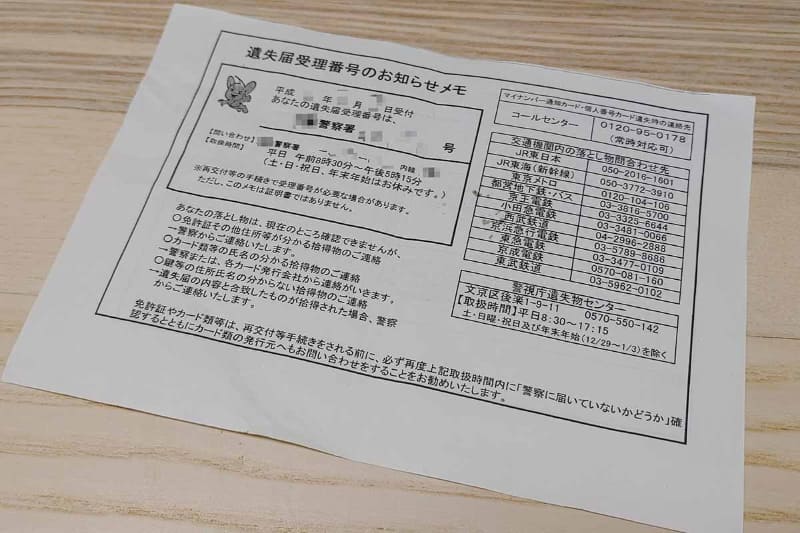 遺失届受理番号のお知らせメモ
平成 年 月 日受付
あなたの遺失届受理番号は、
警察署 号
【問い合わせ】 警察署 内線
【取扱時間】 平日 午前8時30分～午後5時15分
(土・日・祝日、年末年始はお休みです。)
※再交付等の手続きで受理番号が必要な場合があります。
ただし、このメモは証明書ではありません。
あなたの落とし物は、現在のところ確認できませんが、
○免許証その他住所等が分かる拾得物のご連絡
→警察からご連絡いたします。
○カード類等の氏名の分かる拾得物のご連絡
→警察または、各カード発行会社から連絡がいきます。
○鍵等の住所氏名の分からない拾得物のご連絡
→遺失届の内容と合致したものが拾得された場合、警察
からご連絡いたします。
免許証やカード類等は、再交付等手続きをされる前に、必ず再度上記取扱時間内に「警察に届いていないかどうか」確
認するとともにカード類の発行元へもお問い合わせをすることをお勧めいたします。
マイナンバー通知カード・個人番号カード遺失時の連絡先
コールセンター 0120-95-0178
(常時対応可)
交通機関内の落とし物問合わせ先
JR東日本 050-2016-1601
JR東海(新幹線) 050-3772-3910
東京メトロ 0120-104-106
都営地下鉄・バス 03-3816-5700
京王電鉄 03-3325-6644
小田急電鉄 03-3481-0066
西武鉄道 04-2996-2888
京浜急行電鉄 03-5789-8686
東急電鉄 03-3477-0109
京成電鉄 0570-081-160
東武鉄道 03-5962-0102
警視庁遺失物センター
文京区後楽1-9-11 0570-550-142
【取扱時間】平日8:30～17:15
土・日曜・祝日及び年末年始(12/29～1/3)を除く